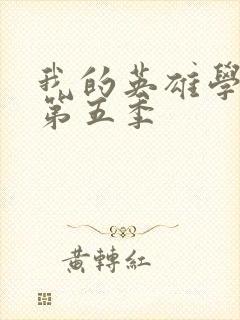 我的英雄學
第五季
黃轉紅